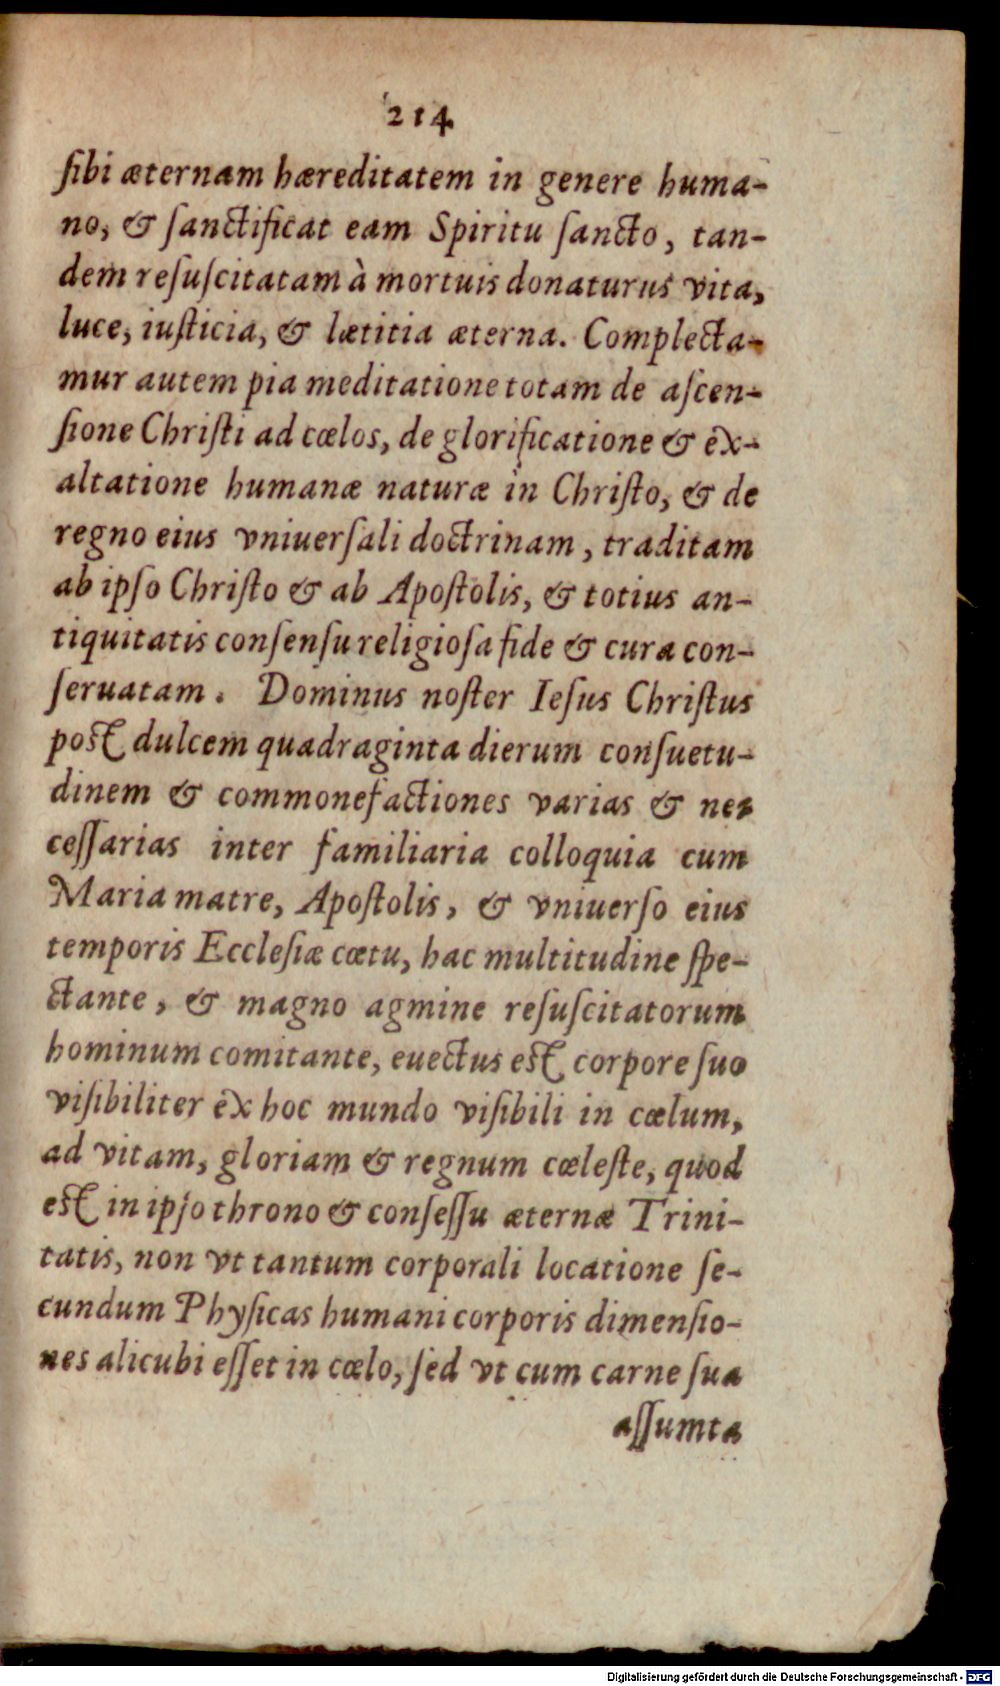 214
ſibi æternam hæreditatem in genere huma-
no, & ſanctificat eam Spiritu ſancto, tan-
dem reſuſcitatam à mortuis donaturus vita,
luce, iuſticia, & lætitia æterna. Complecta-
mur autem pia meditatione totam de aſcen-
ſione Chriſti ad cœlos, de glorificatione & ex-
altatione humanæ naturæ in Chriſto, & de
regno eius vniuerſali doctrinam, traditam
ab ipſo Chriſto & ab Apoſtolis, & totius an-
tiquitatis conſenſu religioſa fide & cura con-
ſeruatam. Dominus noſter Ieſus Chriſtus
poſt dulcem quadraginta dierum conſuetu-
dinem & commonefactiones varias & ne-
ceſſarias inter familiaria colloquia cum
Maria matre, Apoſtolis, & vniuerſo eius
temporis Eccleſiæ cœtu, hac multitudine ſpe-
ctante, & magno agmine reſuſcitatorum
hominum comitante, euectus eſt corpore ſuo
viſibiliter ex hoc mundo viſibili in cœlum,
ad vitam, gloriam & regnum cœleſte, quod
eſt in ipſo throno & conſeſſu æternæ Trini-
tatis, non vt tantum corporali locatione ſe-
cundum Phyſicas humani corporis dimenſio-
nes alicubi eſſet in cœlo, ſed vt cum carne ſua
aſſumta
Digitalisierung gefördert durch die Deutsche Forschungsgemeinschaft - DFG